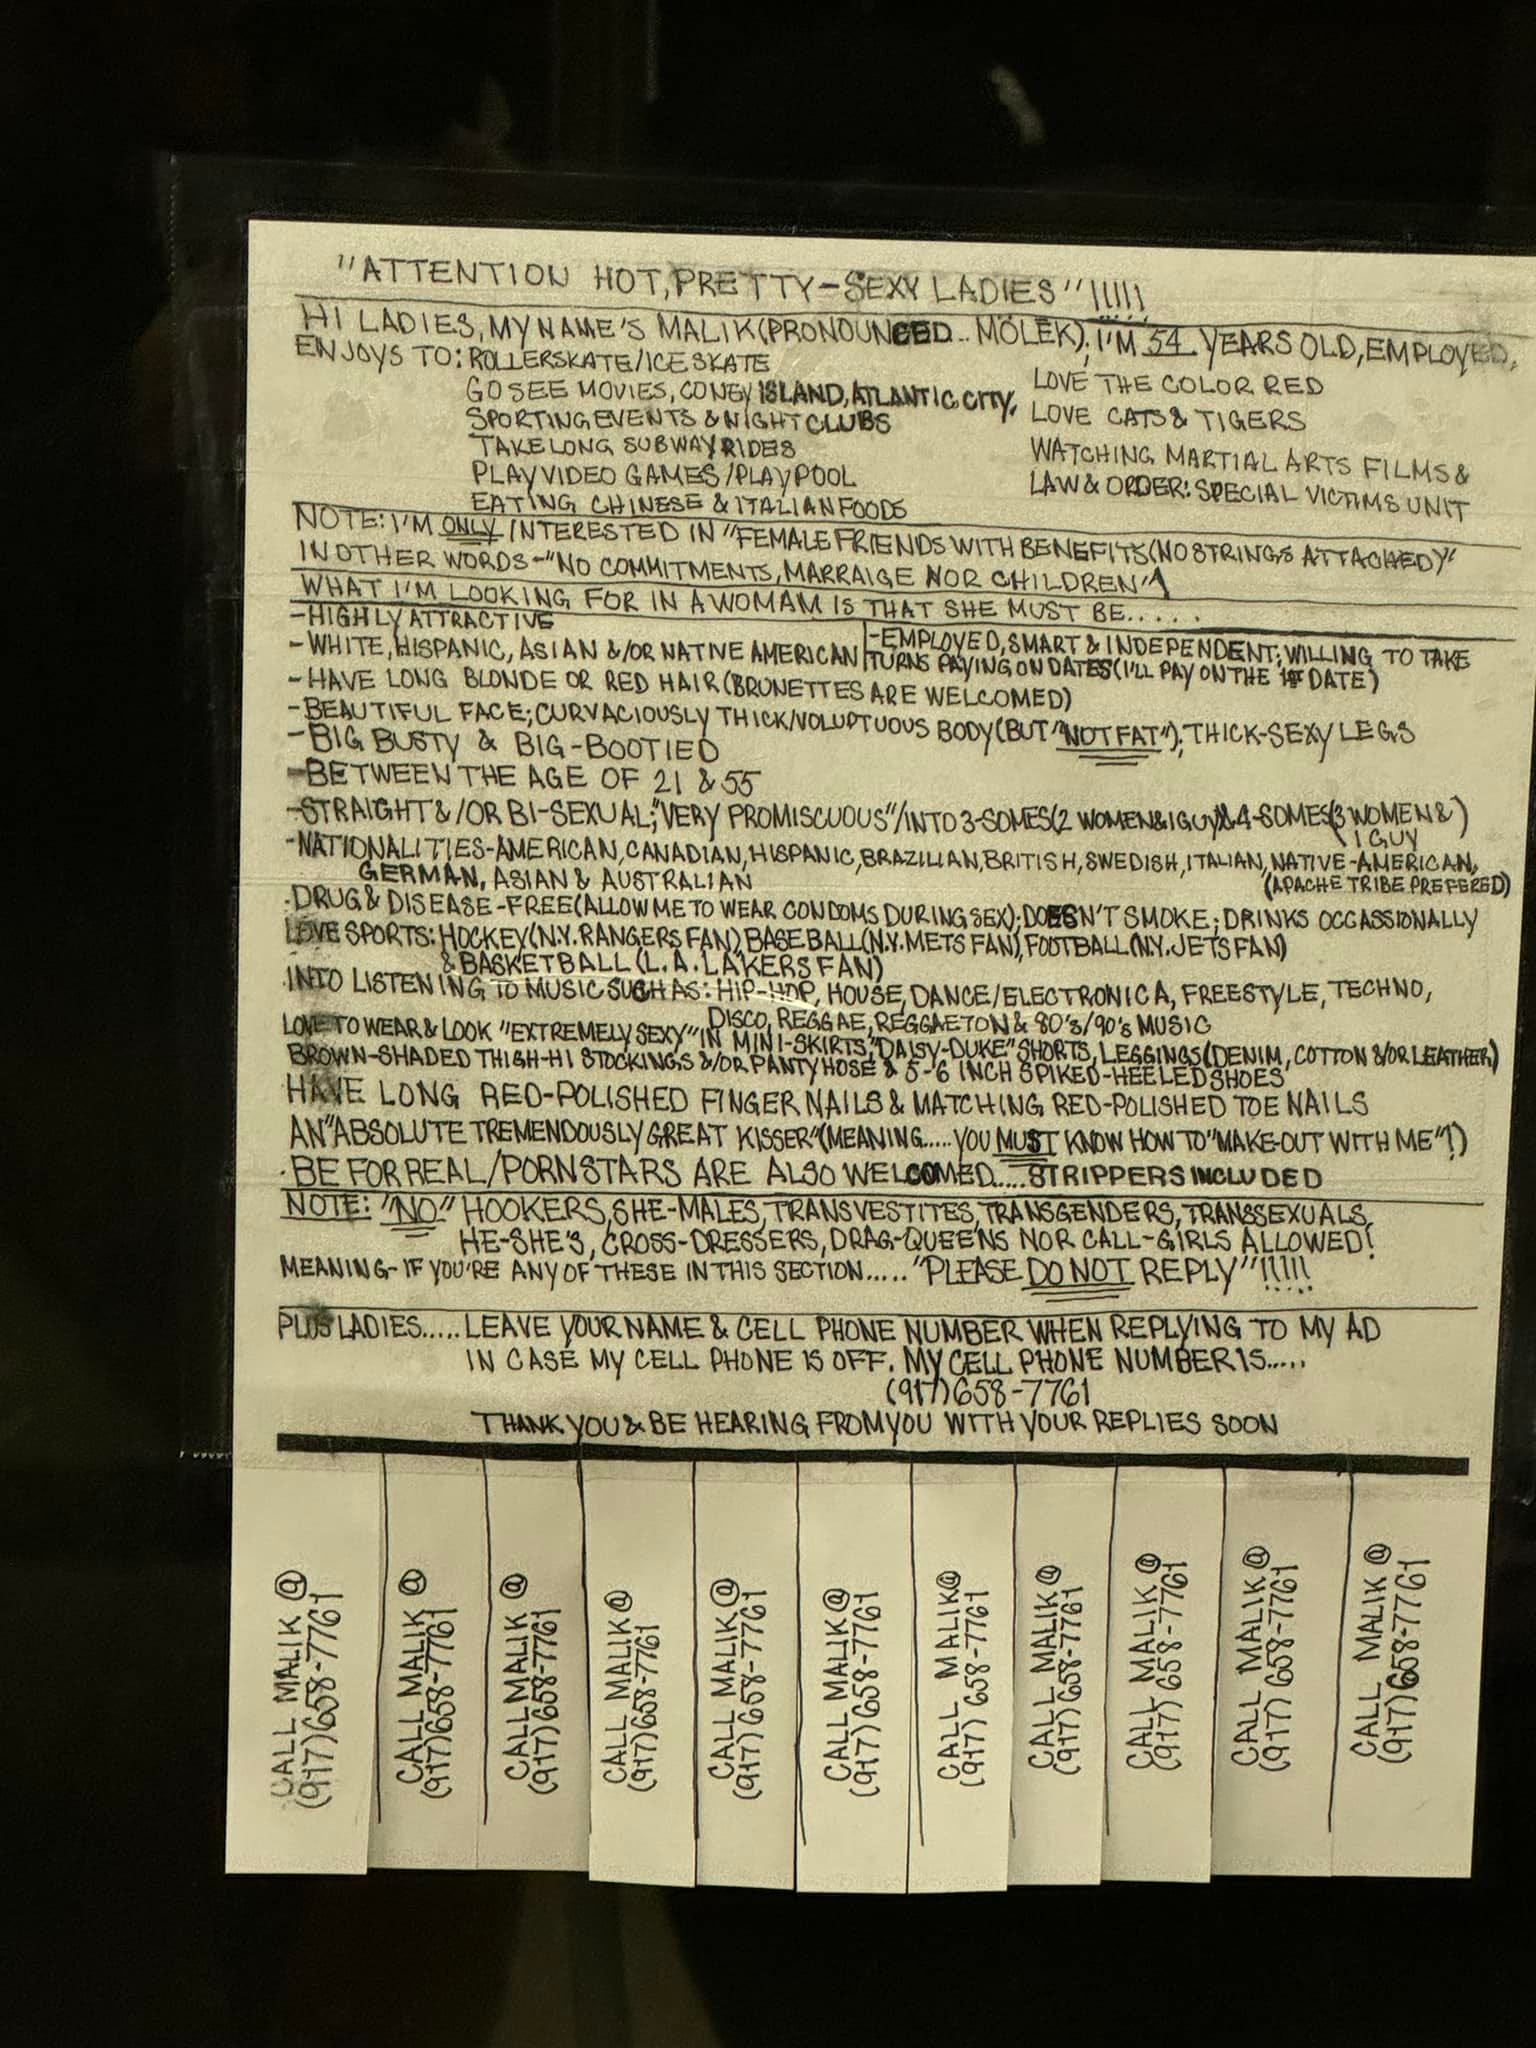 "ATTENTION HOT, PRETTY-SEXY LADIES"!!!!!
HI LADIES, MY NAME'S MALIK (PRONOUNCED.. MOLEK); I'M 54 YEARS OLD, EMPLOYED,
ENJOYS TO: ROLLERSKATE/ICE SKATE
GO SEE MOVIES, CONEY ISLAND, ATLANTIC CITY,
SPORTING EVENTS & NIGHT CLUBS
TAKE LONG SUBWAY RIDES
PLAY VIDEO GAMES/PLAY POOL
EATING CHINESE & ITALIAN FOODS
LOVE THE COLOR RED
LOVE CATS & TIGERS
WATCHING MARTIAL ARTS FILMS &
LAW & ORDER: SPECIAL VICTIMS UNIT
NOTE: I'M ONLY INTERESTED IN "FEMALE FRIENDS WITH BENEFITS (NO STRINGS ATTACHED)"
IN OTHER WORDS-"NO COMMITMENTS, MARRAIGE NOR CHILDREN"!
WHAT I'M LOOKING FOR IN A WOMAM IS THAT SHE MUST BE.....
-HIGHLY ATTRACTIVE
-WHITE, HISPANIC, ASIAN &/OR NATIVE AMERICAN
-EMPLOYED, SMART & INDEPENDENT; WILLING TO TAKE
TURNS PAYING ON DATES (I'LL PAY ON THE 1ST DATE)
-HAVE LONG BLONDE OR RED HAIR (BRUNETTES ARE WELCOMED)
-BEAUTIFUL FACE; CURVACIOUSLY THICK/VOLUPTUOUS BODY (BUT "NOT FAT"); THICK-SEXY LEGS
-BIG BUSTY & BIG-BOOTIED
-BETWEEN THE AGE OF 21 & 55
-STRAIGHT &/OR BI-SEXUAL; "VERY PROMISCUOUS"/INTO 3-SOMES (2 WOMEN & 1 GUY) & 4-SOMES (3 WOMEN & 1 GUY)
-NATIONALITIES-AMERICAN, CANADIAN, HISPANIC, BRAZILIAN, BRITISH, SWEDISH, ITALIAN, NATIVE-AMERICAN,
GERMAN, ASIAN & AUSTRALIAN (APACHE TRIBE PREFERED)
-DRUG & DISEASE-FREE (ALLOW ME TO WEAR CONDOMS DURING SEX); DOESN'T SMOKE; DRINKS OCCASSIONALLY
LOVE SPORTS: HOCKEY (N.Y. RANGERS FAN), BASEBALL (N.Y. METS FAN), FOOTBALL (N.Y. JETS FAN)
& BASKETBALL (L.A. LAKERS FAN)
-INTO LISTENING TO MUSIC SUCH AS: HIP-HOP, HOUSE, DANCE/ELECTRONICA, FREESTYLE, TECHNO,
DISCO, REGGAE, REGGAETON & 80's/90's MUSIC
LOVE TO WEAR & LOOK "EXTREMELY SEXY" IN MINI-SKIRTS, "DAISY-DUKE" SHORTS, LEGGINGS (DENIM, COTTON &/OR LEATHER)
BROWN-SHADED THIGH-HI STOCKINGS &/OR PANTYHOSE & 5-6 INCH SPIKED-HEELED SHOES
HAVE LONG RED-POLISHED FINGER NAILS & MATCHING RED-POLISHED TOE NAILS
AN "ABSOLUTE TREMENDOUSLY GREAT KISSER" (MEANING.....YOU MUST KNOW HOW TO "MAKE-OUT WITH ME"!)
-BE FOR REAL/PORN STARS ARE ALSO WELCOMED.....STRIPPERS INCLUDED
NOTE: "NO" HOOKERS, SHE-MALES, TRANSVESTITES, TRANSGENDERS, TRANSSEXUALS,
HE-SHE'S, CROSS-DRESSERS, DRAG-QUEENS NOR CALL-GIRLS ALLOWED!
MEANING-IF YOU'RE ANY OF THESE IN THIS SECTION....."PLEASE DO NOT REPLY"!!!!!
PLUS LADIES.....LEAVE YOUR NAME & CELL PHONE NUMBER WHEN REPLYING TO MY AD
IN CASE MY CELL PHONE IS OFF. MY CELL PHONE NUMBER IS.....
(917)658-7761
THANK YOU & BE HEARING FROM YOU WITH YOUR REPLIES SOON
CALL MALIK @
(917)658-7761
CALL MALIK @
(917)658-7761
CALL MALIK @
(917)658-7761
CALL MALIK @
(917)658-7761
CALL MALIK @
(917)658-7761
CALL MALIK @
(917)658-7761
CALL MALIK @
(917)658-7761
CALL MALIK @
(917)658-7761
CALL MALIK @
(917)658-7761
CALL MALIK @
(917)658-7761
CALL MALIK @
(917)658-7761